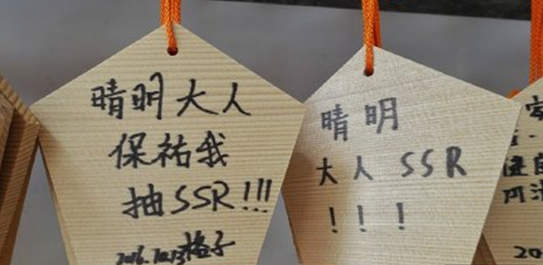 晴明大人
保祐我
抽SSR!!!
2016.10.13 格子
晴明
大人 SSR
!!!
20